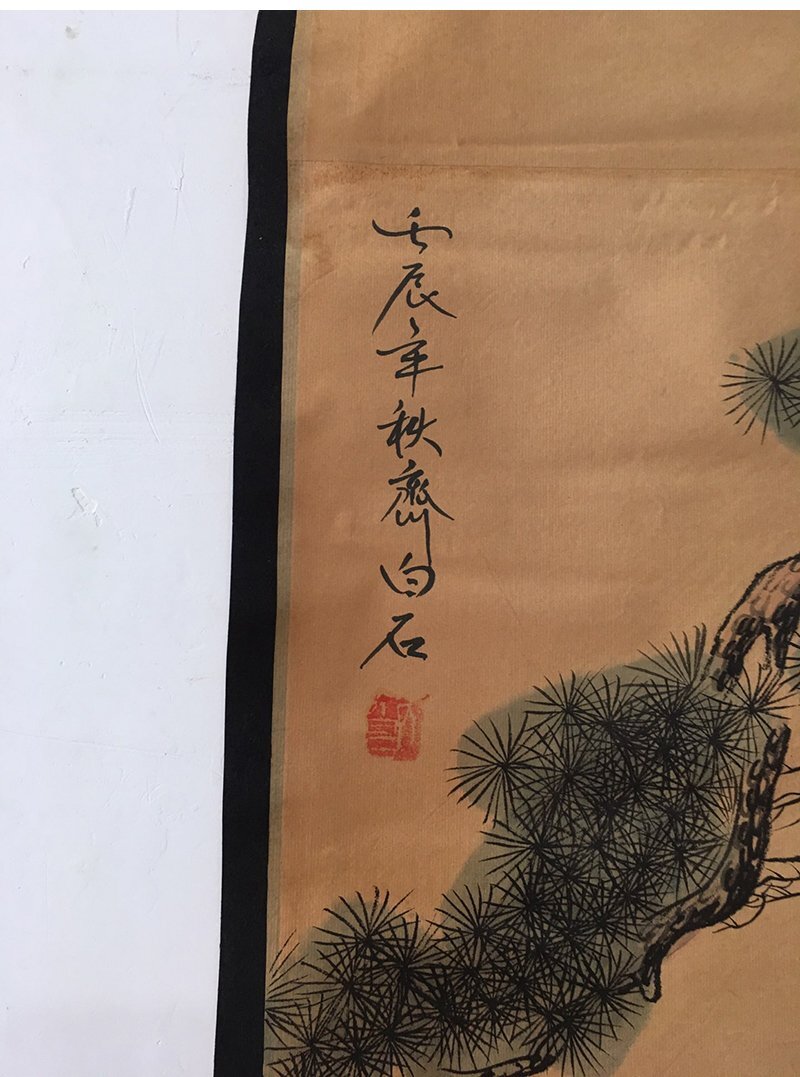 壬辰年秋齋白石